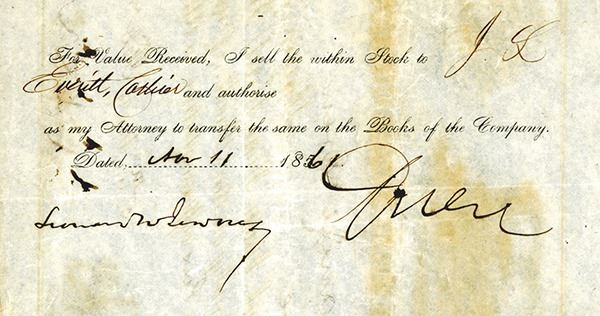 For Value Received, I sell the within Stock to J. L
Everitt, Cashier and authorise
as my Attorney to transfer the same on the Books of the Company.
Dated Nov 11 1861.
Leonard W. Jerome